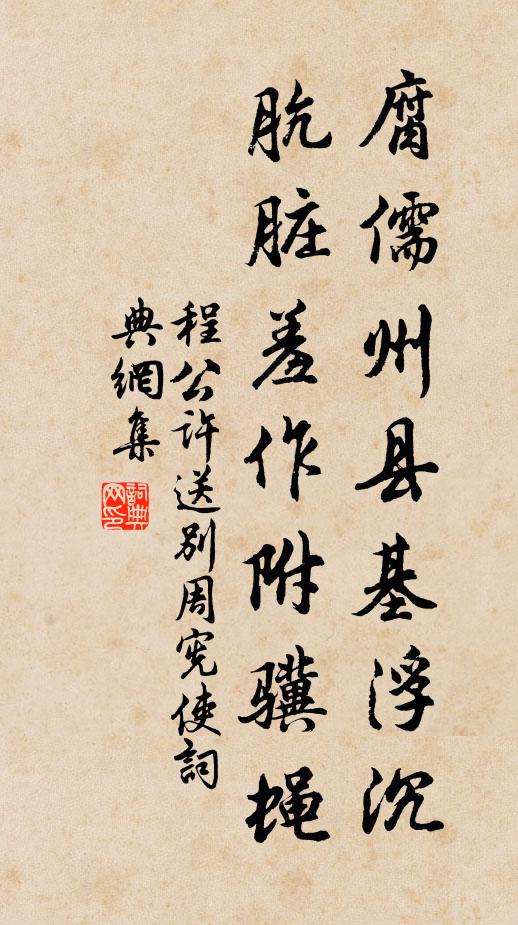 腐儒州县基浮沉
肮脏羞作附骥蝇
程公许送别周宪使詞
典網集
詞典网印